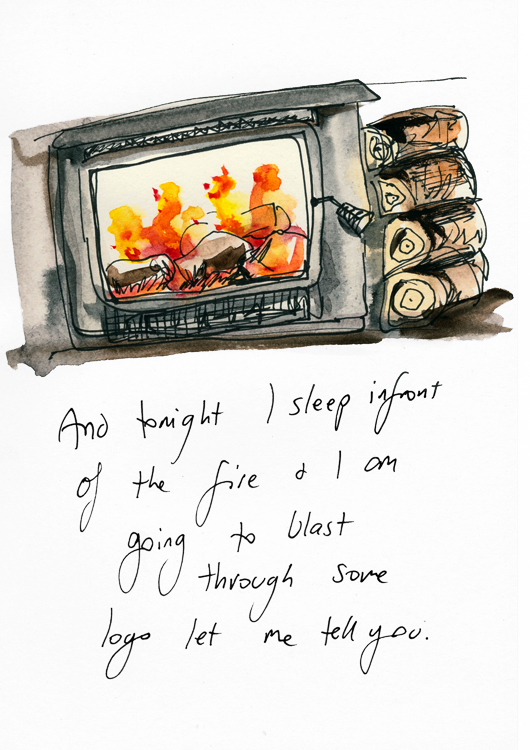 And tonight I sleep infront
of the fire & I am
going to blast
through some
logs let me tell you.